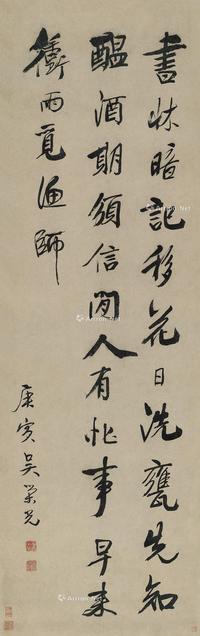 書牀暗記移花日洗甕先知
醞酒期須信閒人有忙事早來
衝雨覓漁師
庚寅吳榮光